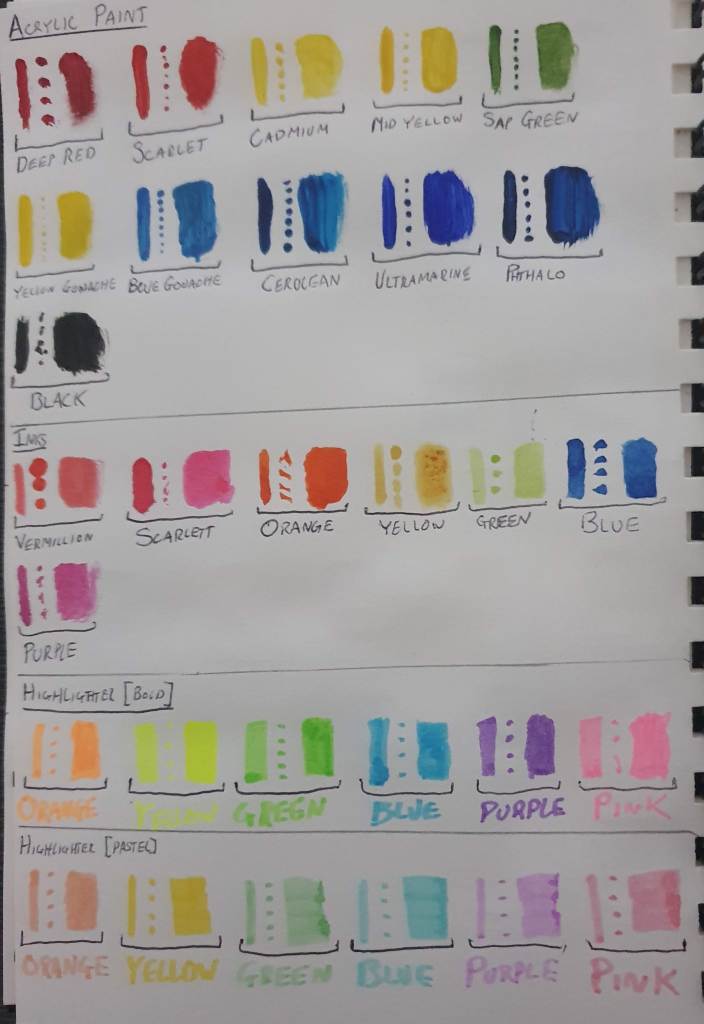 ACRYLIC PAINT
DEEP RED SCARLET CADMIUM MID YELLOW SAP GREEN
YELLOW GOUACHE BLUE GOUACHE CEROLEAN ULTRAMARINE PHTHALO
BLACK
INKS
VERMILLION SCARLETT ORANGE YELLOW GREEN BLUE
PURPLE
HIGHLIGHTER [BOLD]
ORANGE YELLOW GREEN BLUE PURPLE PINK
HIGHLIGHTER [PASTEL]
ORANGE YELLOW GREEN BLUE PURPLE PINK